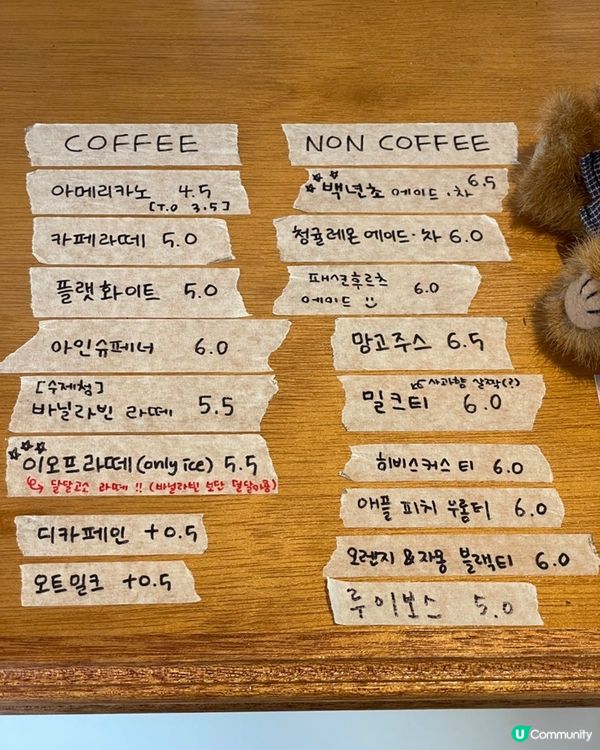 COFFEE
아메리카노 4.5
[T.O 3.5]
카페라떼 5.0
플랫화이트 5.0
아인슈페너 6.0
[수제청]
바닐라빈 라떼 5.5
이오프라떼 (only ice) 5.5
달달고소 라떼 !! (바닐라빈 보단 덜달아용)
디카페인 +0.5
오트밀크 +0.5
NON COFFEE
백년초 에이드·차 6.5
청귤레몬에이드·차 6.0
패션후르츠
에이드 6.0
망고주스 6.5
사과향 살짝(?)
밀크티 6.0
히비스커스 티 6.0
애플 피치 우롱티 6.0
오렌지 & 자몽 블랙티 6.0
루이보스 5.0
U Community